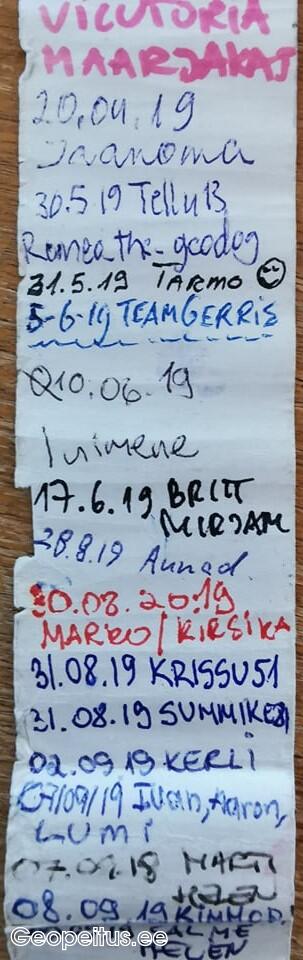 VICUTORIA
MAARJAKAJ
20.04.19
Jaanoma
30.5.19 Tellu13
Romea the-geodog
31.5.19 TARMO
5-6-19 TEAMGERRIS
10.06.19
Inimene
17.6.19 BRITT
MIRJAM
28.8.19 Annad
30.08.2019
MARKO/KIRSIKA
31.08.19 KRISSU51
31.08.19 SUMMIKE
02.09.19 KERLI
07/09/19 Ivan, Aaron,
LUMI
07.09.19 MARTI
HELEN
08.09.19 KIMMOD.
HELEN
Geopeitus.ee